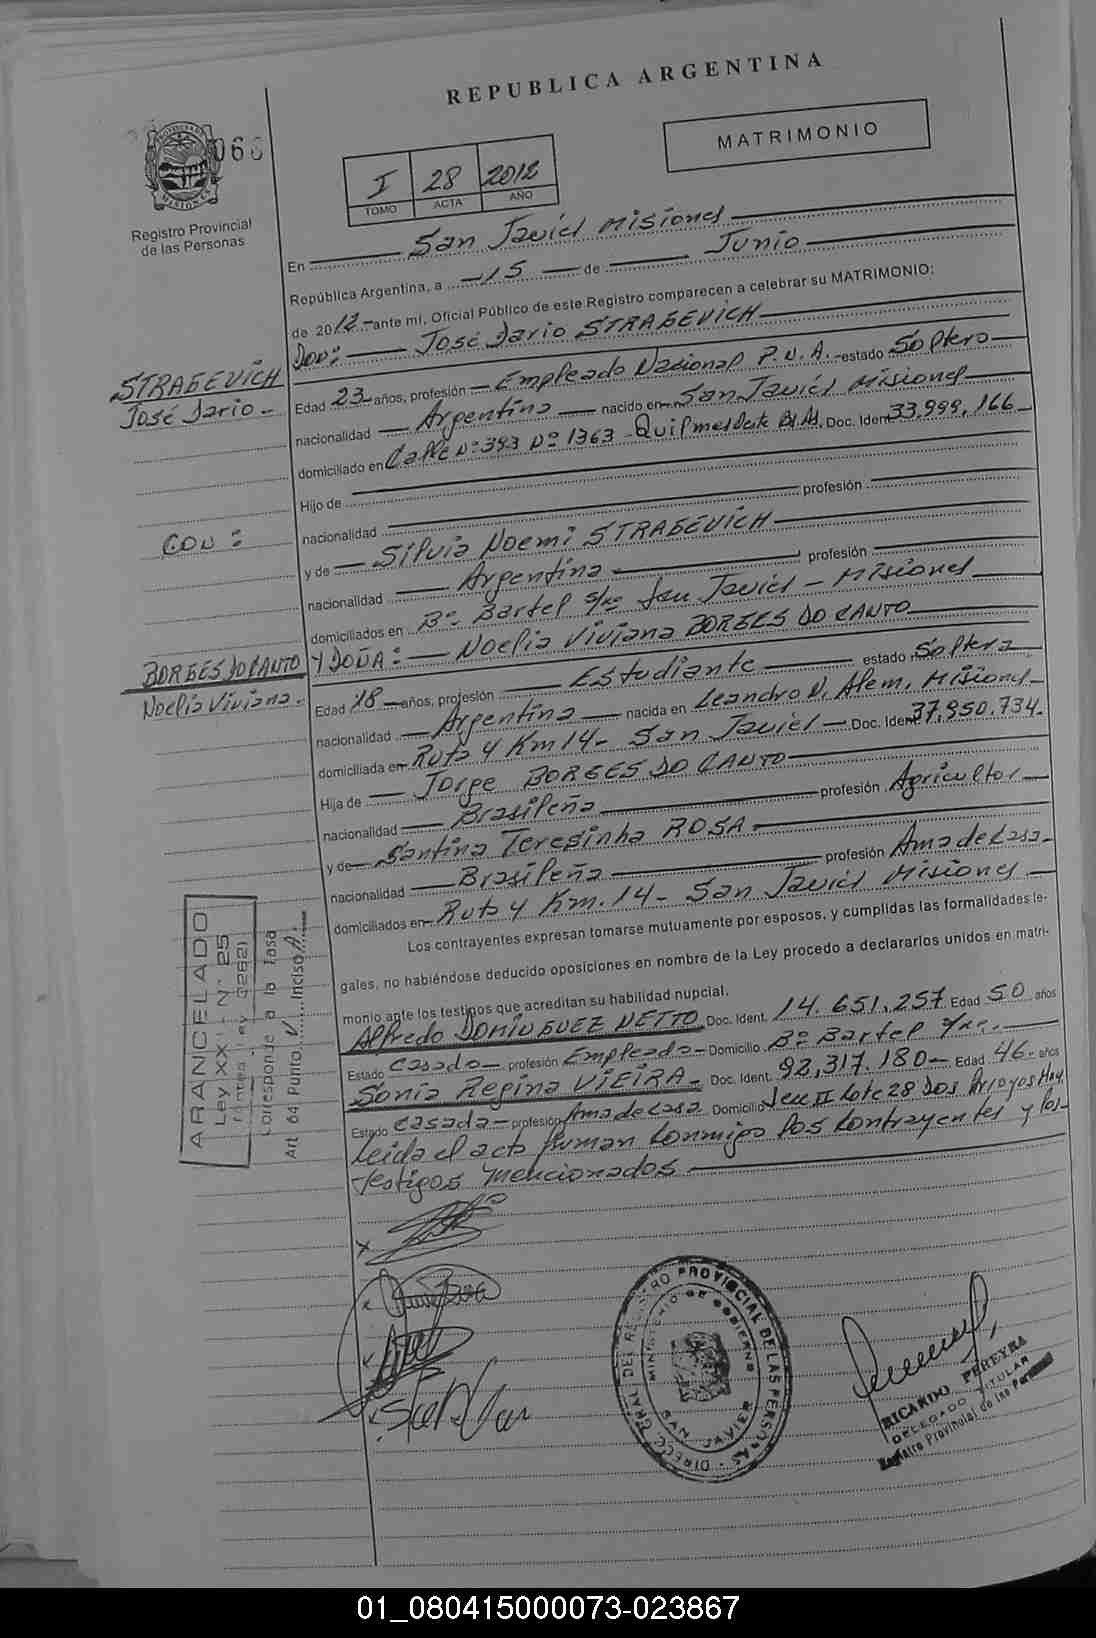 REPUBLICA ARGENTINA
MATRIMONIO
066
PROVINCIA DE MISIONES
Registro Provincial
de las Personas
I 28 2012
TOMO ACTA AÑO
En San Javier Misiones
República Argentina, a 15 de Junio
de 2012 ante mí, Oficial Público de este Registro comparecen a celebrar su MATRIMONIO:
DON: José Dario STRAGEVICH
STRAGEVICH
José Dario
Edad 23 años, profesión Empleado Nacional P.N.A. estado Soltero
nacionalidad Argentina nacido en San Javier Misiones
domiciliado en Calle Nº 393 Nº 1363 - Quilmes Bs. As. Doc. Ident. 33.999.166
Hijo de
nacionalidad profesión
CON:
y de Silvia Noemi STRAGEVICH
nacionalidad Argentina profesión
domiciliados en Bº Bartel s/nº San Javier - Misiones
Y DOÑA: Noelia Viviana BORGES DO CANTO
BORGES DO CANTO
Noelia Viviana
Edad 18 años, profesión Estudiante estado Soltera
nacionalidad Argentina nacida en Leandro N. Alem, Misiones
domiciliada en Ruta 4 Km 14 - San Javier - Doc. Ident. 37.950.734
Hija de Jorge BORGES DO CANTO
nacionalidad Brasileña profesión Agricultor
y de Santina Teresinha ROSA
nacionalidad Brasileña profesión Ama de Casa
domiciliados en Ruta 4 Km. 14 - San Javier Misiones
Los contrayentes expresan tomarse mutuamente por esposos, y cumplidas las formalidades le-
gales, no habiéndose deducido oposiciones en nombre de la Ley procedo a declararlos unidos en matri-
monio ante los testigos que acreditan su habilidad nupcial.
Alfredo DOMINGUEZ NETTO Doc. Ident. 14.651.257 Edad 50 años
Estado Casado profesión Empleado Domicilio Bº Bartel s/nº
Sonia Regina VIEIRA Doc. Ident. 92.317.180 Edad 46 años
Estado Casada profesión Ama de Casa Domicilio Secc II Lote 28 Dos Arroyos
Leida el acta firman conmigo los contrayentes y los
testigos mencionados
ARANCELADO
Ley XX - Nº 25
(Antes Ley 2262)
Corresponde a la Tasa
Art. 64 Punto V Inciso A.
DIRECC. GRAL. DEL REGISTRO PROVINCIAL DE LAS PERSONAS
MINISTERIO DE GOBIERNO
SAN JAVIER
RICARDO PEREYRA
DELEGADO TITULAR
Registro Provincial de las Personas
01_080415000073-023867